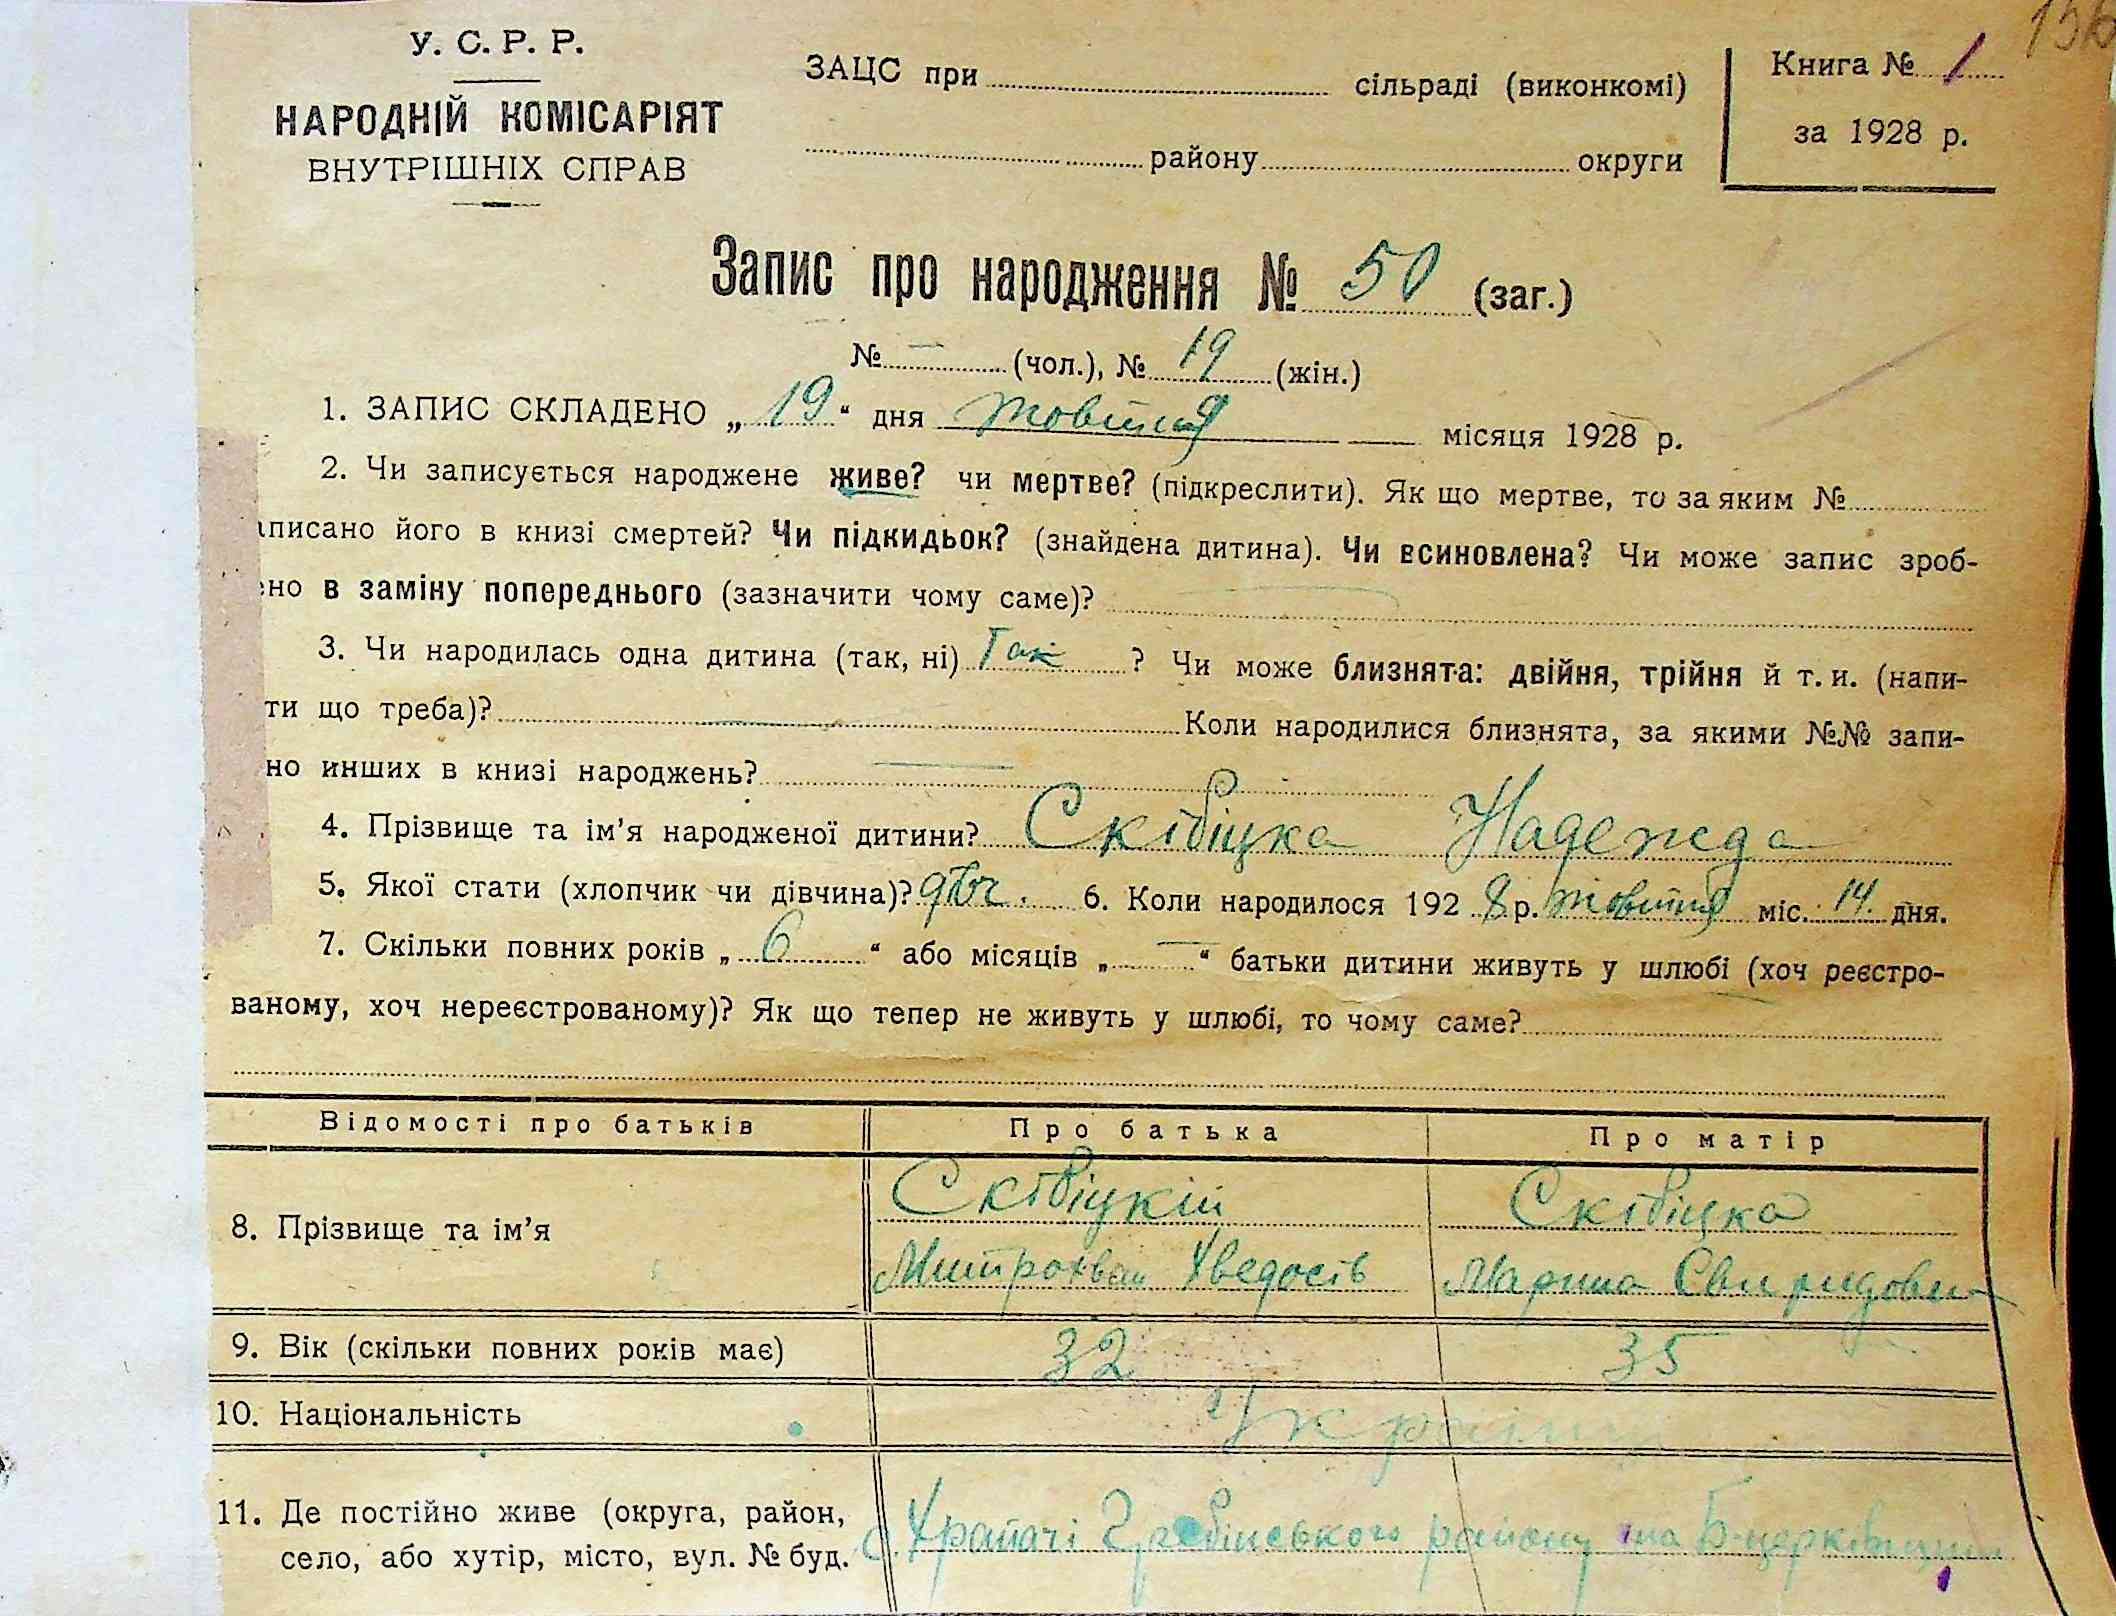 У. С. Р. Р.
НАРОДНІЙ КОМІСАРІЯТ
ВНУТРІШНІХ СПРАВ
ЗАЦС при сільраді (виконкомі)
району округи
Книга № 1
за 1928 р.
Запис про народження № 50 (заг.)
№ — (чол.), № 19 (жін.)
1. ЗАПИС СКЛАДЕНО „19“ дня жовтня місяця 1928 р.
2. Чи записується народжене живе? чи мертве? (підкреслити). Як що мертве, то за яким №
аписано його в книзі смертей? Чи підкидьок? (знайдена дитина). Чи всиновлена? Чи може запис зроб-
ено в заміну попереднього (зазначити чому саме)?
3. Чи народилась одна дитина (так, ні) Так ? Чи може близнята: двійня, трійня й т. и. (напи-
ти що треба)? Коли народилися близнята, за якими №№ запи-
но инших в книзі народжень?
4. Прізвище та ім’я народженої дитини? Скібіцка Надежда
5. Якої стати (хлопчик чи дівчина)? дівч. 6. Коли народилося 192 8 р. жовтня міс. 14 дня.
7. Скільки повних років „ 6 “ або місяців „ — “ батьки дитини живуть у шлюбі (хоч реєстро-
ваному, хоч нереєстрованому)? Як що тепер не живуть у шлюбі, то чому саме?
Відомості про батьків Про батька Про матір
8. Прізвище та ім’я Скібіцкій Скібіцка
Митрохван Хведосів Марина Свиридовна
9. Вік (скільки повних років має) 32 35
10. Національність Україн
11. Де постійно живе (округа, район, с. Храпачі Гребінського району на Б-церківщині
село, або хутір, місто, вул. № буд.